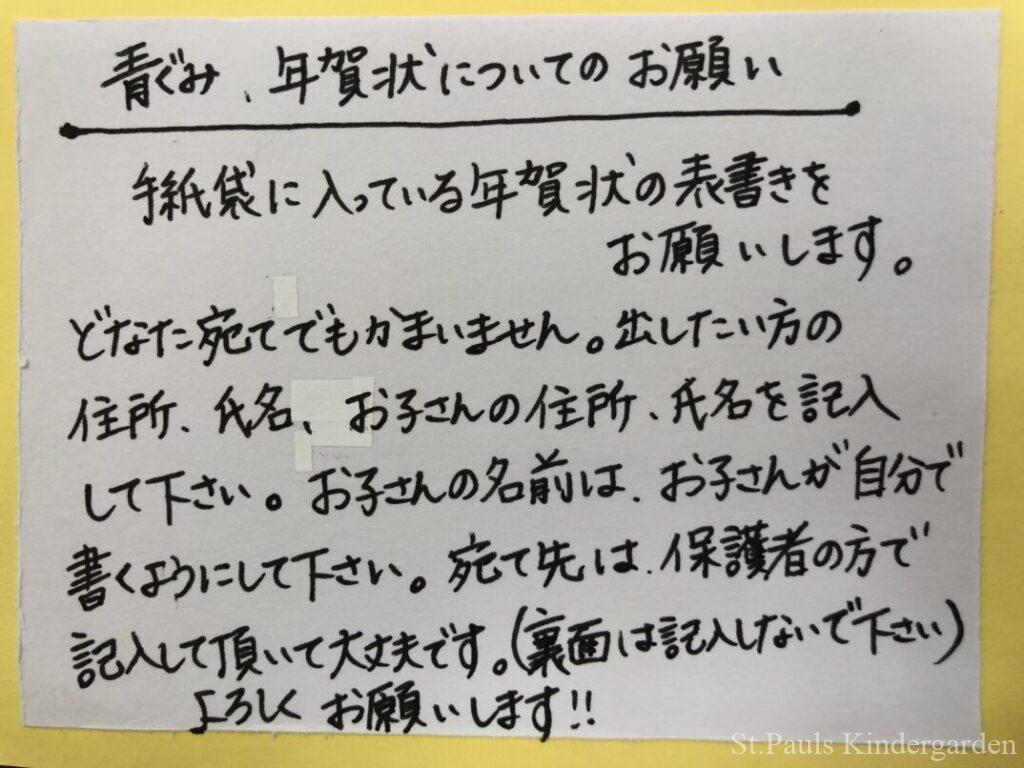 青ぐみ、年賀状についてのお願い
手紙袋に入っている年賀状の表書きを
お願いします。
どなた宛てでもかまいません。出したい方の
住所、氏名、お子さんの住所、氏名を記入
して下さい。お子さんの名前は、お子さんが自分で
書くようにして下さい。宛て先は、保護者の方で
記入して頂いて大丈夫です。(裏面は記入しないで下さい)
よろしくお願いします!!
St.Pauls Kindergarden